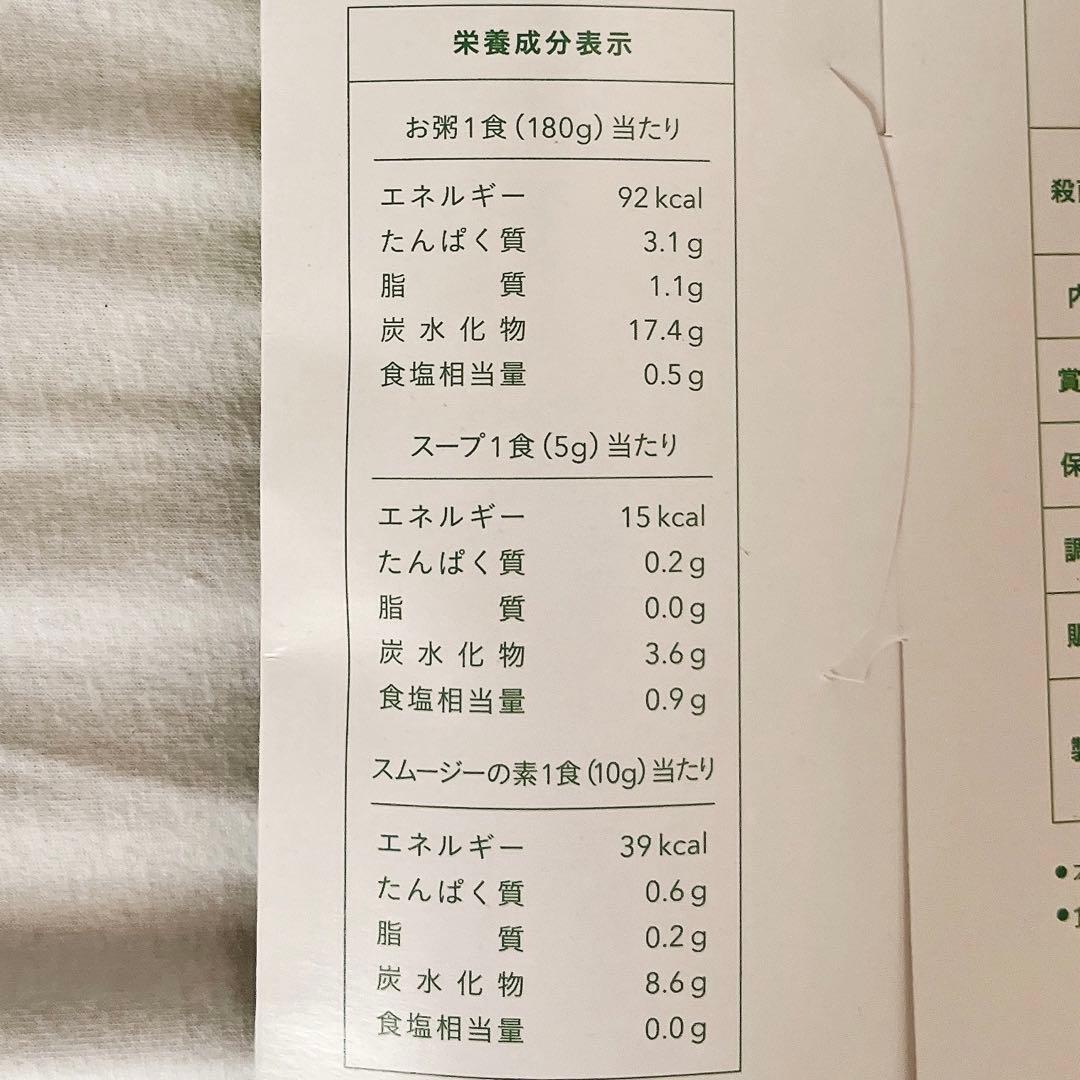 栄養成分表示
お粥1食(180g)当たり
エネルギー 92kcal
たんぱく質 3.1g
脂質 1.1g
炭水化物 17.4g
食塩相当量 0.5g
スープ1食(5g)当たり
エネルギー 15kcal
たんぱく質 0.2g
脂質 0.0g
炭水化物 3.6g
食塩相当量 0.9g
スムージーの素1食(10g)当たり
エネルギー 39kcal
たんぱく質 0.6g
脂質 0.2g
炭水化物 8.6g
食塩相当量 0.0g
殺
内
賞
保
調